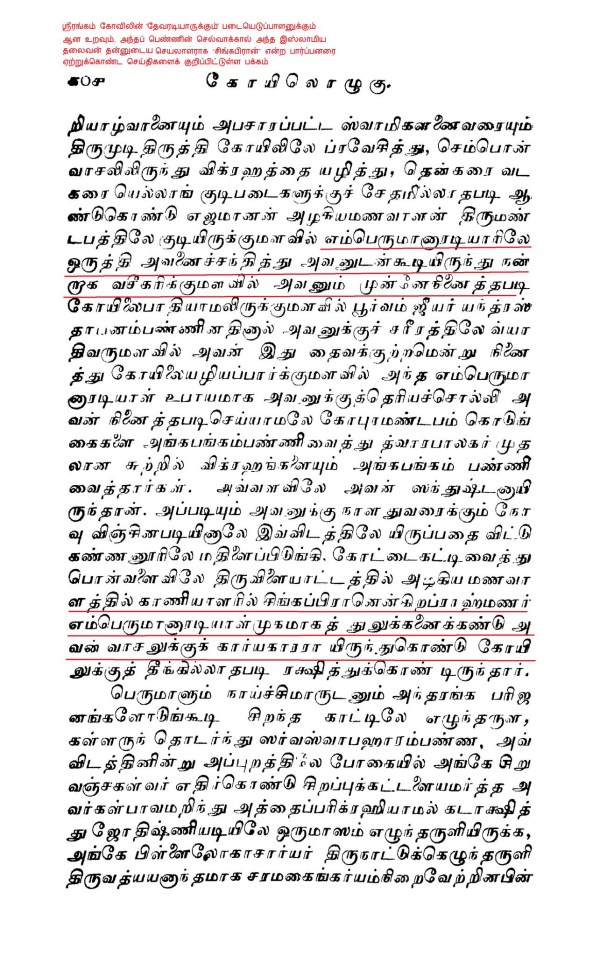 ஸ்ரீரங்கம் கோவிலின் 'தேவரடியாருக்கும்' படையெடுப்பாளனுக்கும்
ஆன உறவும், அந்தப் பெண்ணின் செல்வாக்கால் அந்த இஸ்லாமிய
தலைவன் தன்னுடைய செயலாளராக 'சிங்கபிரான்' என்ற பார்ப்பனரை
ஏற்றுக்கொண்ட செய்திகளைக் குறிப்பிட்டுள்ள பக்கம்
கோயிலொழுகு.
றியாழ்வானையும் அபசாரப்பட்ட ஸ்வாமிகளனைவரையும்
திருமுடி திருத்தி கோயிலிலே ப்ரவேசித்து, செம்பொன்
வாசலிலிருந்து விக்ரஹத்தை யழித்து, தென்கரை வட
கரை யெல்லாங் குடிபடைகளுக்குச் சேதமில்லாதபடி ஆ
ண்டுகொண்டு எஜமானன் அழகியமணவாளன் திருமண்
டபத்திலே குடியிருக்குமளவில் எம்பெருமானாரடியாரிலே
ஒருத்தி அவனைச்சந்தித்து அவனுடன்கூடியிருந்து நன்
றாக வசீகரிக்குமளவில் அவனும் முன்னினைத்தபடி
கோயிலைபாதியாமலிருக்குமளவில் பூர்வம் ஜீயர் யந்த்ரஸ்
தாபனம்பண்ணினதினால் அவனுக்குச் சரீரத்திலே வ்யா
திவருமளவில் அவன் இது தைவக்குற்றமென்று நினை
த்து கோயிலையழியப்பார்க்குமளவில் அந்த எம்பெருமா
னாரடியாள் உபாயமாக அவனுக்குத்தெரியச்சொல்லி அ
வன் நினைத்தபடிசெய்யாமலே கோபுரமண்டபம் கொடுங்
கைகளை அங்கபங்கம்பண்ணிவைத்து த்வாரபாலகர் முத
லான சுற்றில் விக்ரஹங்களையும் அங்கபங்கம் பண்ணி
வைத்தார்கள். அவ்வளவிலே அவன் ஸந்துஷ்டனாயி
ருந்தான். அப்படியும் அவனுக்கு நாளதுவரைக்கும் நோ
வு விஞ்சினபடியினாலே இவ்விடத்திலே யிருப்பதை விட்டு
கண்ணனூரிலே மதிளைப்பிடுங்கி, கோட்டைகட்டிவைத்து
பொன்வளைவிலே திருவிளையாட்டத்தில் அழகிய மணவா
ளத்தில் காணியாளரில் சிங்கப்பிரானென்கிறப்ராஹ்மணர்
எம்பெருமானாரடியாள்முகமாகத் துலுக்கனைக்கண்டு அ
வன் வாசலுக்குக் கார்யகாரரா யிருந்துகொண்டு கோயி
லுக்குத் தீங்கில்லாதபடி ரக்ஷித்துக்கொண் டிருந்தார்.
பெருமாளும் நாய்ச்சிமாருடனும் அந்தரங்க பரிஜ
னங்களோடுங்கூடி சிறந்த காட்டிலே எழுந்தருள,
கள்ளருந் தொடர்ந்து ஸர்வஸ்வாபஹாரம்பண்ண, அவ்
விடத்தினின்று அப்புறத்திலே போகையில் அங்கே சிறு
வஞ்சகள்வர் எதிர்கொண்டு சிறப்புக்கட்டளையமர்த்த அ
வர்கள்பாவமறிந்து அத்தைப்பரிக்ரஹியாமல் கடாக்ஷித்
து ஜோதிஷ்ணியடியிலே ஒருமாஸம் எழுந்தருளியிருக்க,
அங்கே பிள்ளைலோகாசார்யர் திருநாட்டுக்கெழுந்தருளி
திருவத்யயனாந்தமாக சரமகைங்கர்யம்நிறைவேற்றினபின்